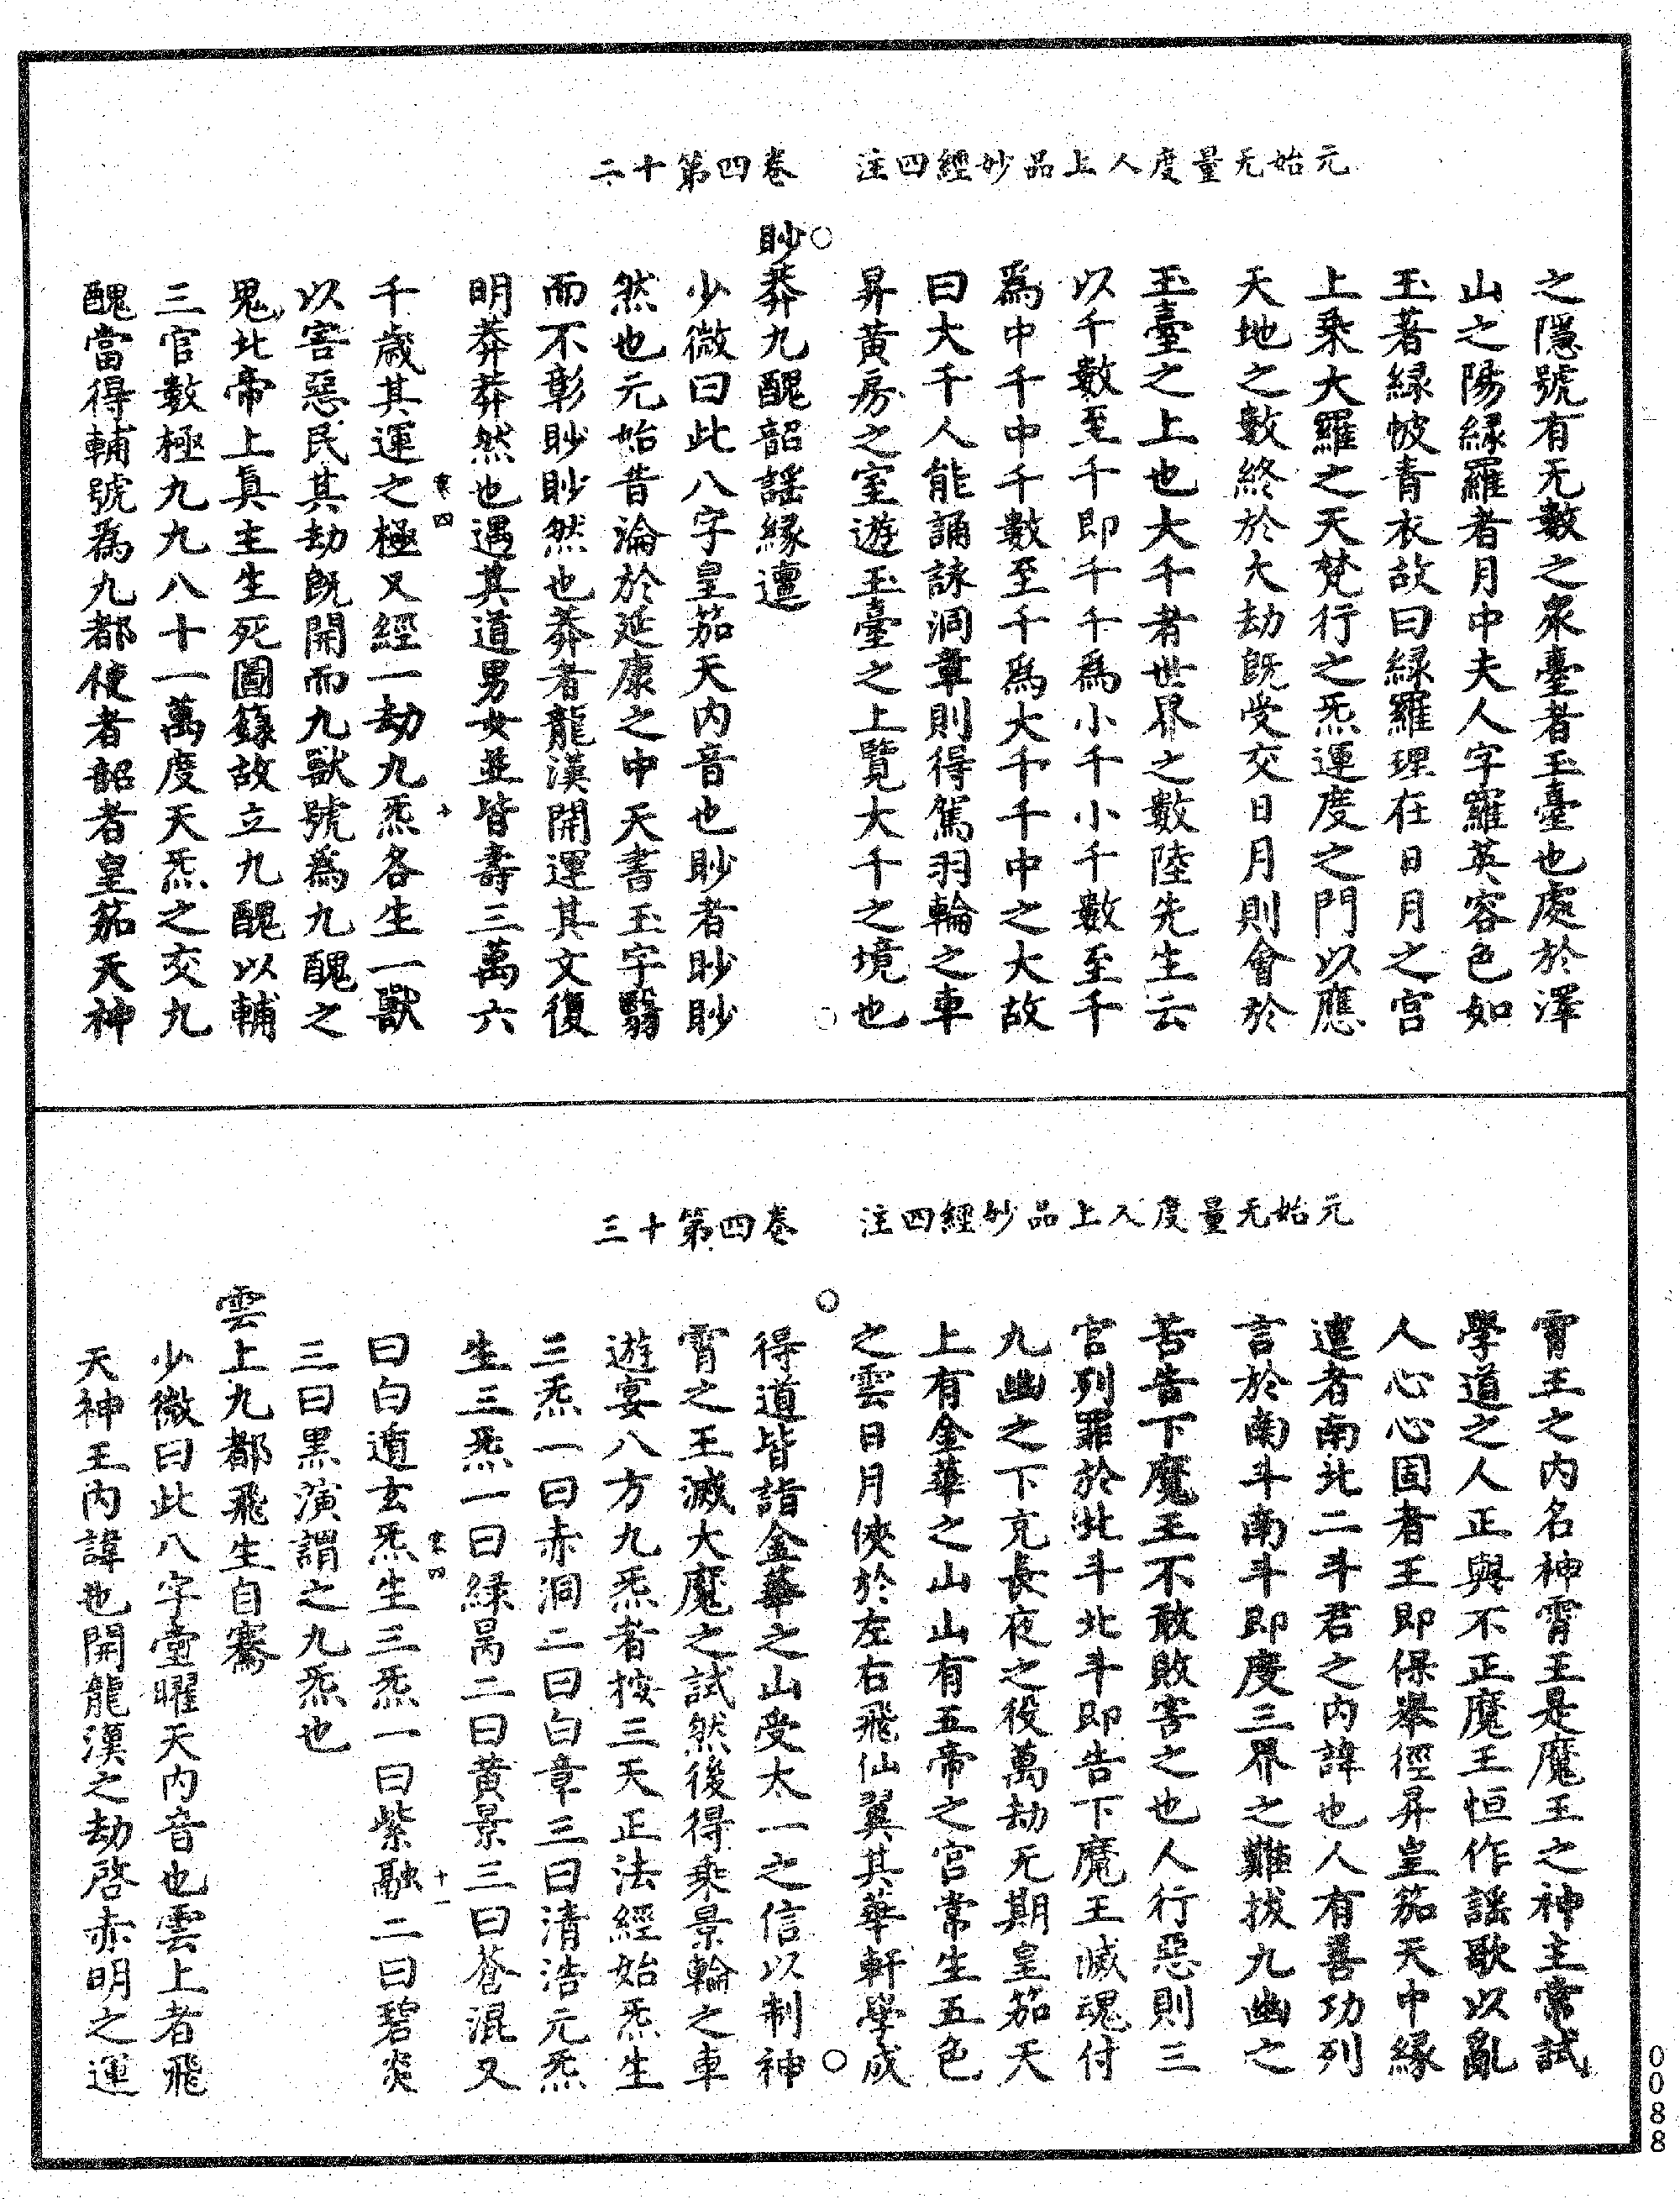 元始无量度人上品妙經四注 卷四第十二
之隱號有无數之衆臺者玉臺也處於澤
山之陽緑羅者月中夫人字羅英容色如
玉著緑帔青衣故曰緑羅理在日月之宫
上乘大羅之天梵行之炁運度之門以應
天地之數終於大劫旣受交日月則會於
玉臺之上也大千者世界之數陸先生云
以千數至千即千千爲小千小千數至千
爲中千中千數至千爲大千千中之大故
曰大千人能誦詠洞章則得駕羽輪之車
昇黄房之室遊玉臺之上覽大千之境也
○眇莽九醜韶謡縁邅
少微曰此八字皇笳天内音也眇者眇眇
然也元始昔淪於延康之中天書玉字翳
而不彰眇眇然也莽者龍漢開運其文復
明莽莽然也遇其道男女並皆壽三萬六
寒四 十
千歲其運之極又經一劫九炁各生一獸
以害惡民其劫旣開而九獸號爲九醜之
鬼北帝上真主生死圖籙故立九醜以輔
三官數極九九八十一萬度天炁之交九
醜當得輔號爲九都使者韶者皇笳天神
元始无量度人上品妙經四注 卷四第十三
霄王之内名神霄王是魔王之神主常試
學道之人正與不正魔王恒作謡歌以亂
人心心固者王即保舉徑昇皇笳天中縁
邅者南北二斗君之内諱也人有善功列
言於南斗南斗即度三界之難拔九幽之
苦告下魔王不敢敗害之也人行惡則三
官列罪於北斗北斗即告下魔王滅魂付
九幽之下充長夜之役萬劫无期皇笳天
上有金華之山山有五帝之宫常生五色
之雲日月俠於左右飛仙翼其華軒學成
得道皆詣金華之山受太一之信以制神
霄之王滅大魔之試然後得乘景輪之車
遊宴八方九炁者按三天正法經始炁生
三炁一曰赤洞二曰白章三曰清浩元炁
生三炁一曰緑昺二曰黄景三曰蒼混又
寒四 十一
曰白遁玄炁生三炁一曰紫融二曰碧炎
三曰黑演謂之九炁也
雲上九都飛生自騫
少微曰此八字堂曜天内音也雲上者飛
天神王内諱也開龍漢之劫啓赤明之運
0088